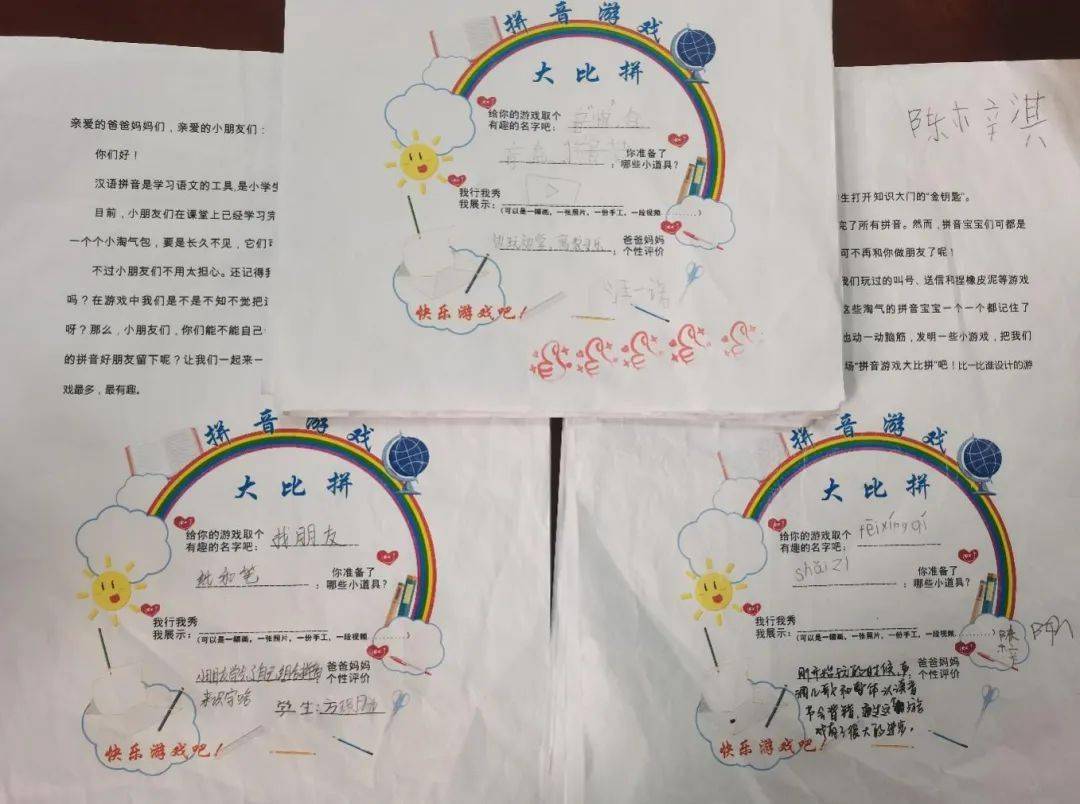 亲爱的爸爸妈妈们，亲爱的小朋友们：
你们好！
汉语拼音是学习语文的工具,是小学生
目前，小朋友们在课堂上已经学习完
一个个小淘气包，要是长久不见，它们可
不过小朋友们不用太担心。还记得我
吗？在游戏中我们是不是不知不觉把这
呀？那么，小朋友们，你们能不能自己
的拼音好朋友留下呢？让我们一起来一
戏最多，最有趣。
拼音游戏
大比拼
给你的游戏取个
有趣的名字吧：
你准备了
；哪些小道具？
我行我秀
我展示：
(可以是一幅画，一张照片，一份手工，一段视频………)
爸爸妈妈
；个性评价
快乐游戏吧！
陈梓淇
生打开知识大门的“金钥匙”。
完了所有拼音。然而，拼音宝宝们可都是
可不再和你做朋友了呢！
我们玩过的叫号、送信和捏橡皮泥等游戏
这些淘气的拼音宝宝一个一个都记住了
也动一动脑筋，发明一些小游戏，把我们
场“拼音游戏大比拼”吧！比一比谁设计的游
拼音游戏
大比拼
给你的游戏取个
有趣的名字吧： 找朋友
纸和笔 ；你准备了
哪些小道具？
我行我秀
我展示：
(可以是一幅画，一张照片，一份手工，一段视频………)
爸爸妈妈
个性评价
来识字啦
学生：
快乐游戏吧！
拼音游戏
大比拼
给你的游戏取个
有趣的名字吧： fēixíngqí
shǎizi ；你准备了
哪些小道具？
我行我秀
我展示：
(可以是一幅画，一张照片，一份手工，一段视频………)
爸爸妈妈
个性评价
刚开始玩的时候，
不会拼
戏有了很大的进步。
快乐游戏吧！